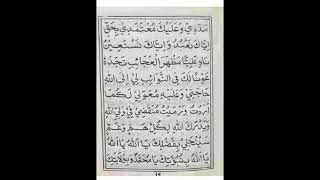 مَدَدِيْ وَعَلَيْكَ مُعْتَمَدِيْ بِحَقِّ
اِيَّاكَ نَعْبُدُ وَاِيَّاكَ نَسْتَعِيْنُ
نَادِ عَلِيًّا مَظْهَرَ الْعَجَائِبِ تَجِدْهُ
عَوْنًا لَكَ فِي النَّوَائِبِ لِيْ اِلَى اللهِ
حَاجَتِيْ وَعَلَيْهِ مُعَوَّلِيْ كُلَّمَا
وَرَمَيْتُ مُنْقَضِيْ فِيْ اللهِ
اللهِ لِيْ كُلُّ هَمٍّ وَغَمٍّ
سَيَنْجَلِيْ يَا اَللهُ يَا اَللهُ
يَا اَللهُ بِنُبُوَّتِكَ يَا مُحَمَّدُ بِوِلَايَتِكَ